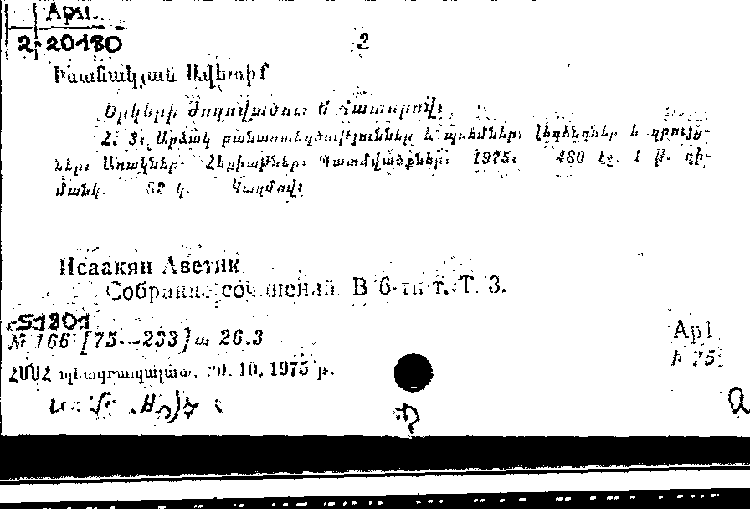 Ар1
2-20180
2
Իսահակյան Ավետիք
Երկերի ժողովածու: 6 հատորով:
Հ. 3: Արձակ բանաստեղծություններ և պոեմներ: լեգենդներ և զրույց-
ներ: Առակներ: Հեքիաթներ: Պատմվածքներ: 1975: 480 էջ. 1 թ. դի-
մանկ. 82 կ. Կազմով:
Исаакян Аветик
Собрание сочинений. В 6-ти т. Т. 3.
с51801
№ 166 [75—233] 26.3
ՀՍՍՀ պետգրապալատ. 20. 10. 1975 թ.
Ар1
И 75